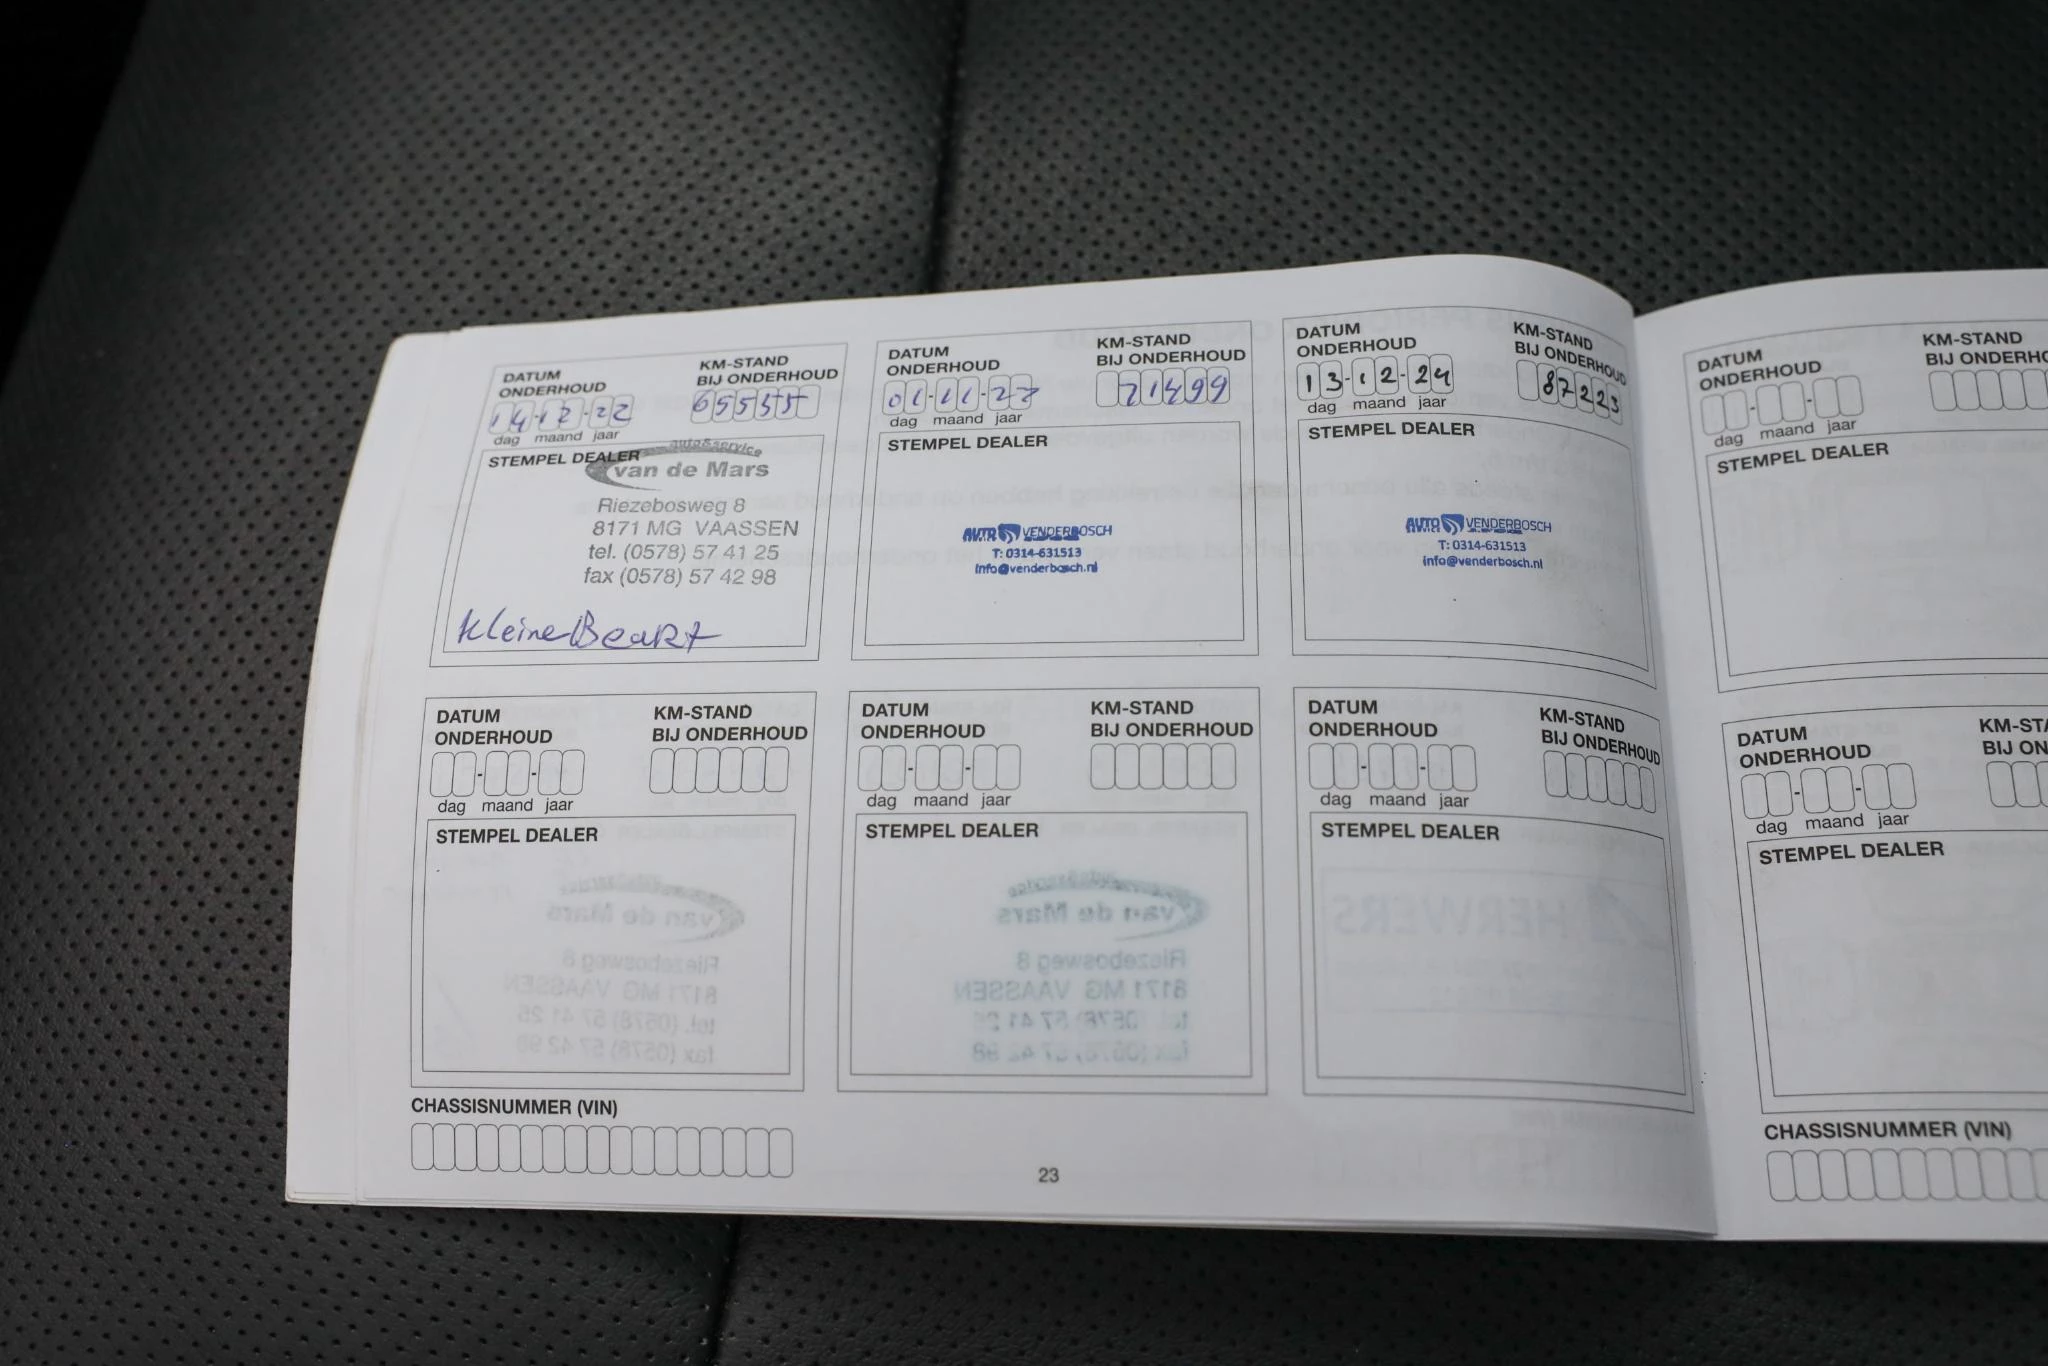 DATUM ONDERHOUD
14-12-22
dag maand jaar
KM-STAND BIJ ONDERHOUD
65555
STEMPEL DEALER
auto&service
van de Mars
Riezebosweg 8
8171 MG VAASSEN
tel. (0578) 57 41 25
fax (0578) 57 42 98
Kleine Beurt
DATUM ONDERHOUD
01-11-23
dag maand jaar
KM-STAND BIJ ONDERHOUD
71499
STEMPEL DEALER
AUTO VENDERBOSCH
T: 0314-631513
info@venderbosch.nl
DATUM ONDERHOUD
13-12-24
dag maand jaar
KM-STAND BIJ ONDERHOUD
87223
STEMPEL DEALER
AUTO VENDERBOSCH
T: 0314-631513
info@venderbosch.nl
DATUM ONDERHOUD
dag maand jaar
KM-STAND BIJ ONDERHOUD
STEMPEL DEALER
DATUM ONDERHOUD
dag maand jaar
KM-STAND BIJ ONDERHOUD
STEMPEL DEALER
DATUM ONDERHOUD
dag maand jaar
KM-STAND BIJ ONDERHOUD
STEMPEL DEALER
CHASSISNUMMER (VIN)
23
DATUM ONDERHOUD
dag maand jaar
KM-STAND
BIJ ONDERHO
STEMPEL DEALER
DATUM ONDERHOUD
dag maand jaar
KM-STA
BIJ ON
STEMPEL DEALER
CHASSISNUMMER (VIN)